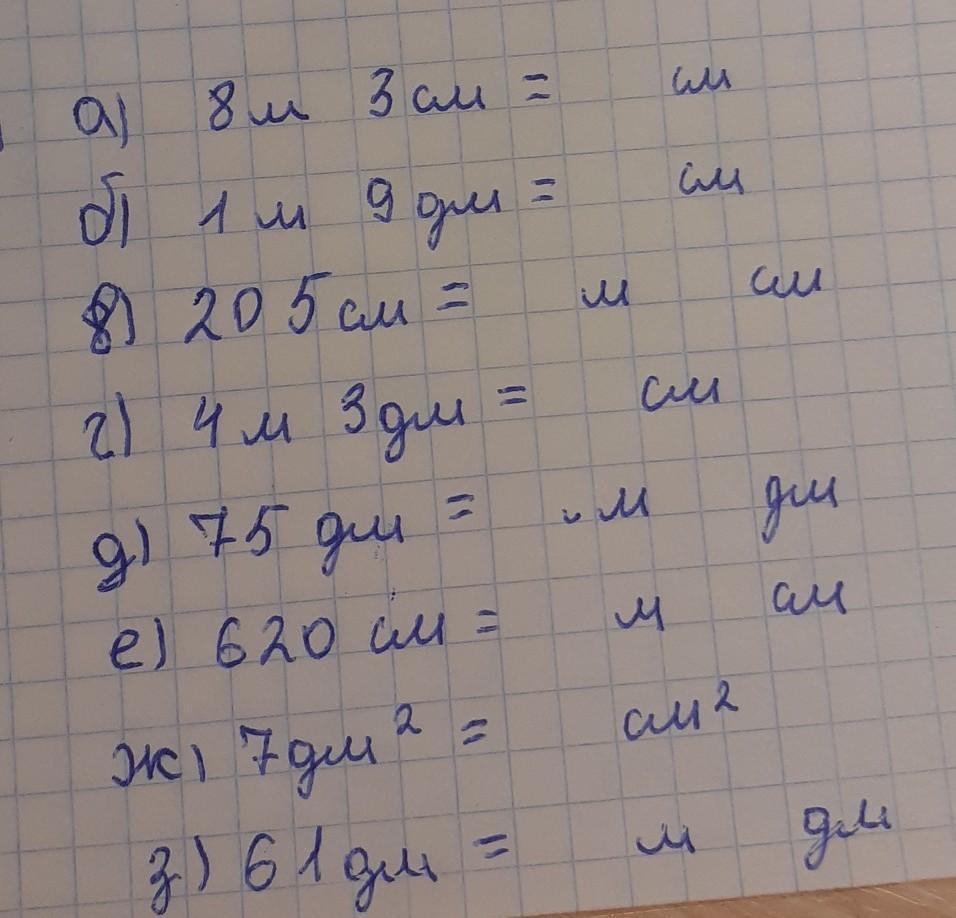 а) 8 м 3 см = см
б) 1 м 9 дм = см
в) 205 см = м см
г) 4 м 3 дм = см
д) 75 дм = м дм
е) 620 см = м см
ж) 7 дм² = см²
з) 61 дм = м дм